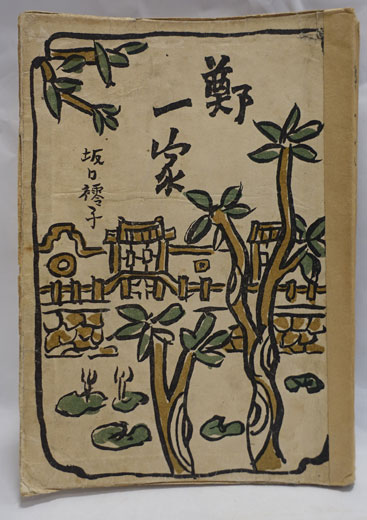 鄭一家
坂口䙥子